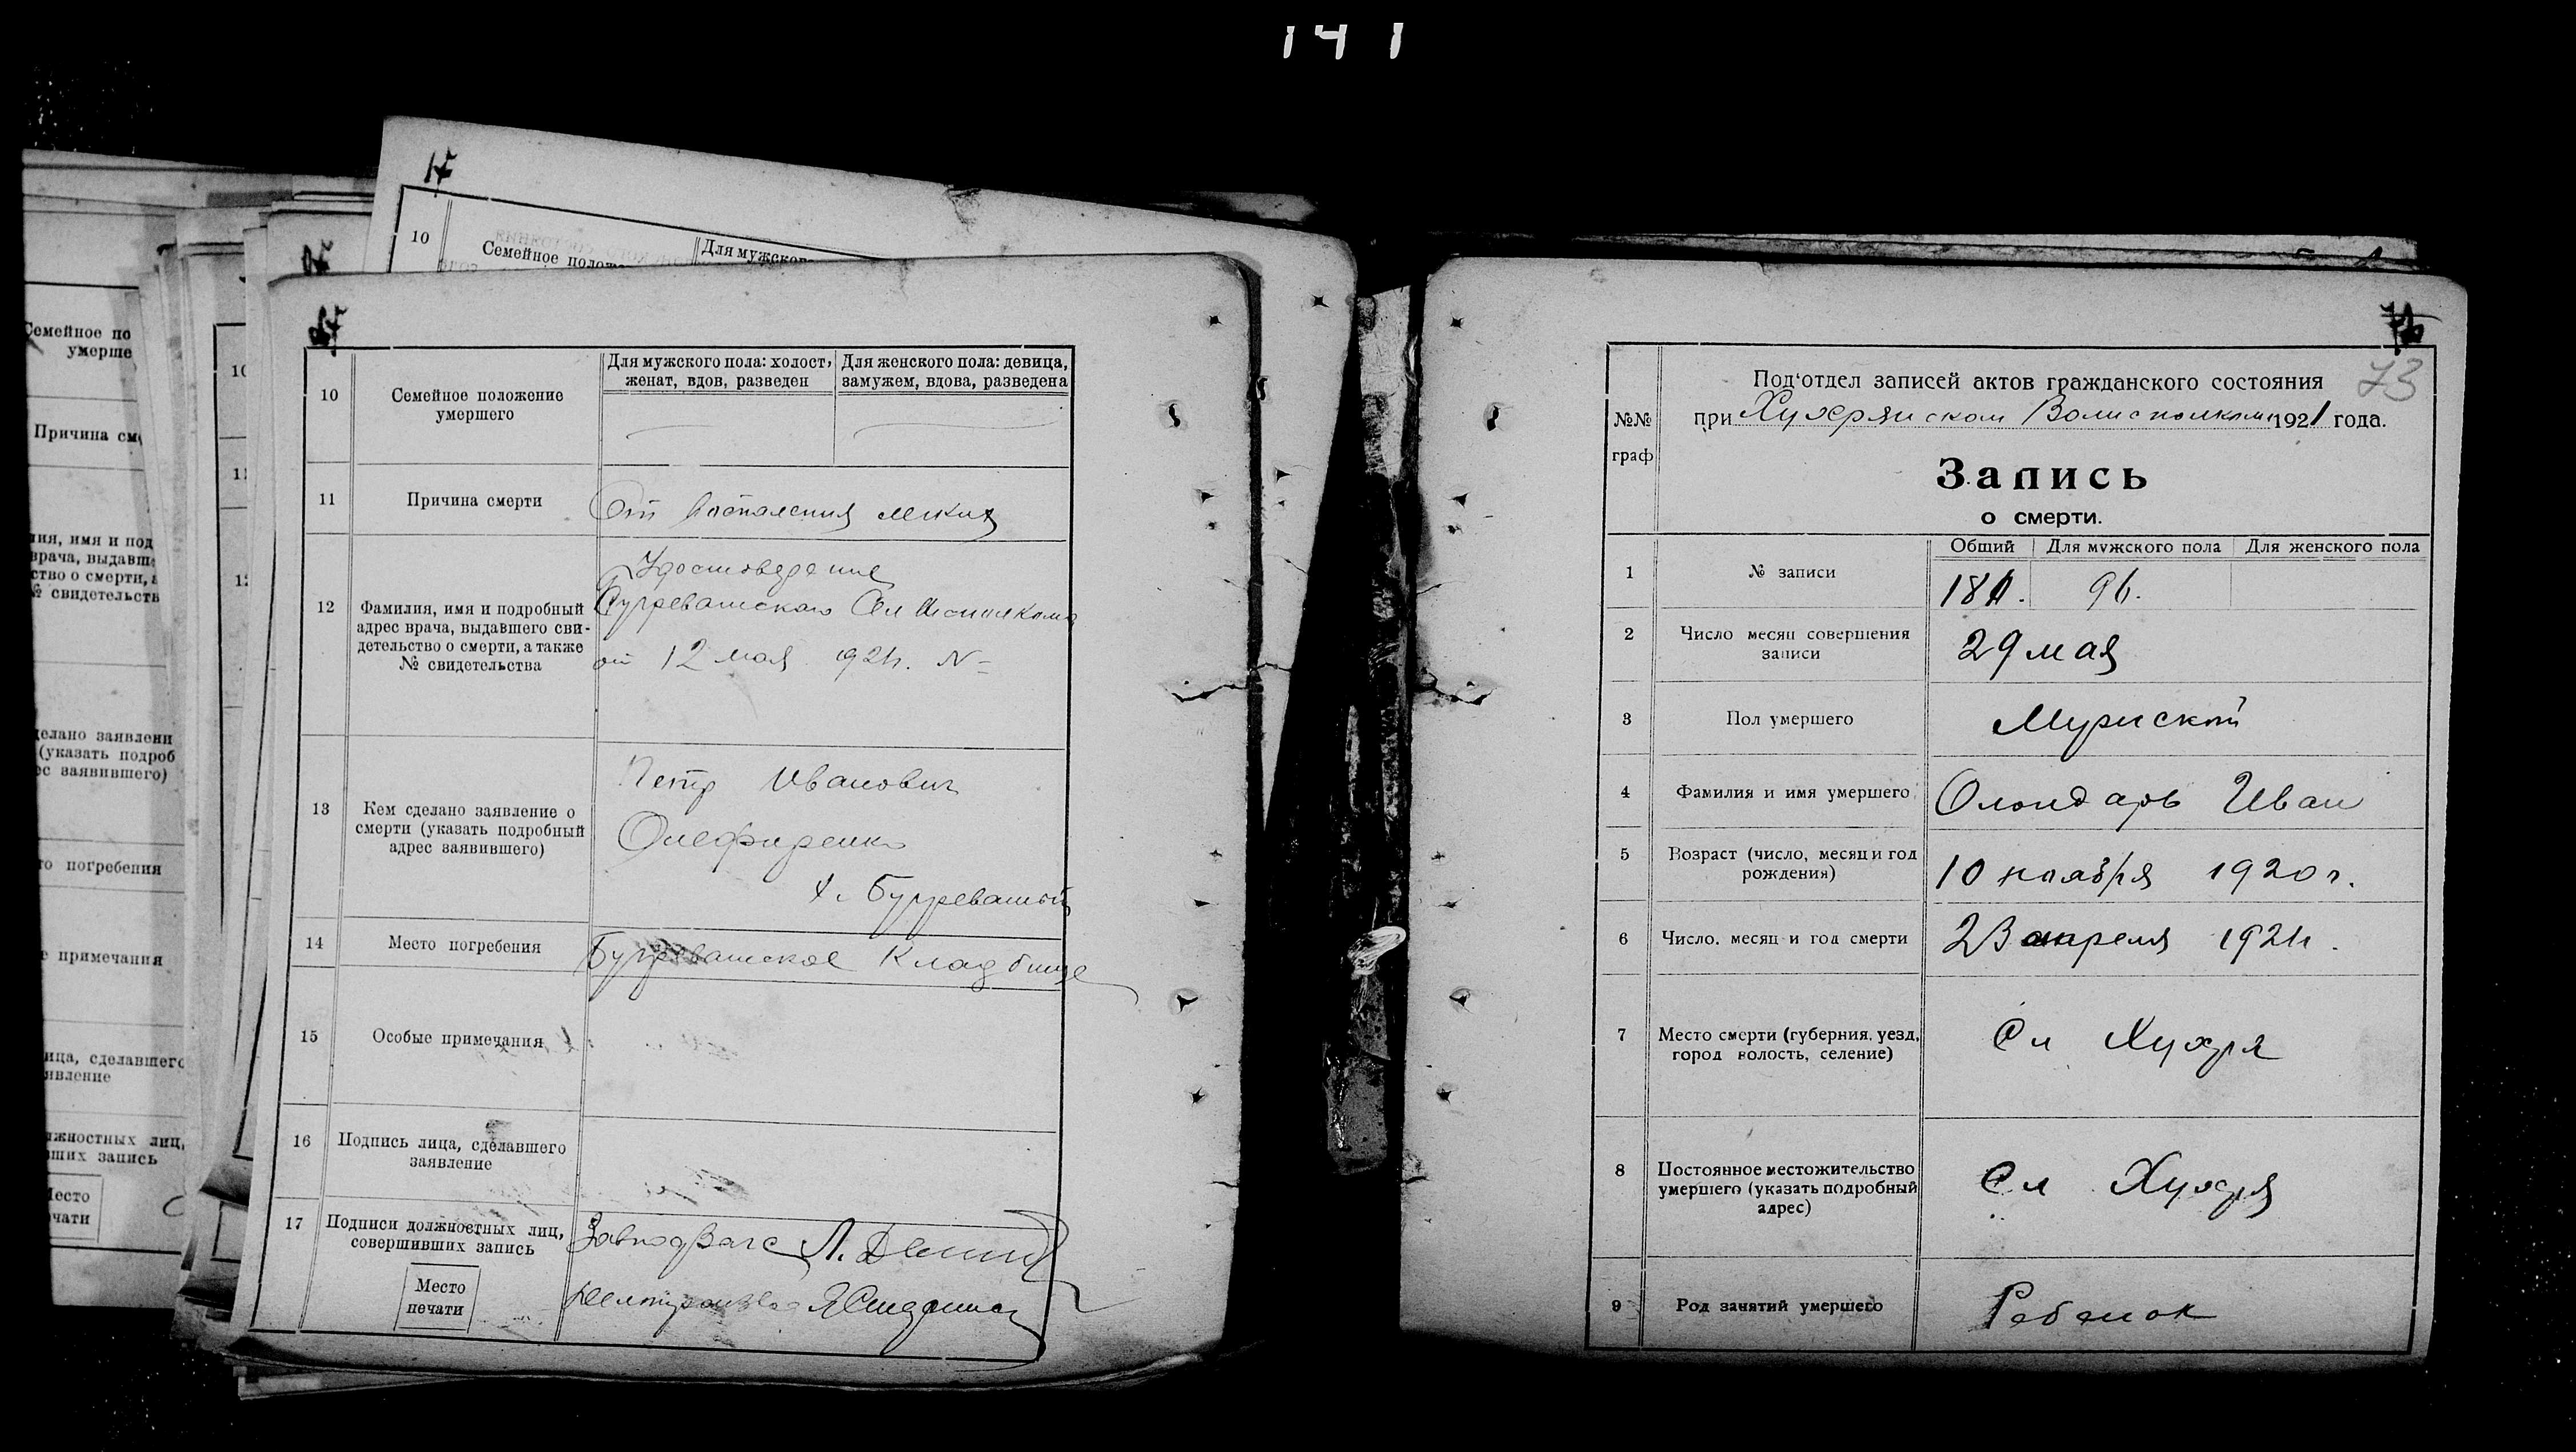 141
10
Семейное полож
Для мужског
Семейное по
умерше
Причина см
ия, имя и под
врача, выдавш
ство о смерти, а
№ свидетельств
сделано заявлени
(указать подроб
ес заявившего)
то погребения
е примечания
ица, сделавшего
явление
лжностных лиц,
вших запись
Место
печати
10
Семейное положение
умершего
Для мужского пола: холост,
женат, вдов, разведен
Для женского пола: девица,
замужем, вдова, разведена
11
Причина смерти
От воспаления легких
12
Фамилия, имя и подробный
адрес врача, выдавшего сви-
детельство о смерти, а также
№ свидетельства
Удостоверение
Сел Исполкома
от 12 мая 1921г. N=
13
Кем сделано заявление о
смерти (указать подробный
адрес заявившего)
Петр Иванович
Олефиренко
х.
14
Место погребения
Кладбище
15
Особые примечания
16
Подпись лица, сделавшего
заявление
17
Подписи должностных лиц,
совершивших запись
Завподзагс Л.
Место
печати
73
№№
граф
Под'отдел записей актов гражданского состояния
при Хухрянском Волисполкоме 1921 года.
Запись
о смерти.
1
№ записи
Общий
Для мужского пола
Для женского пола
96.
2
Число месяц совершения
записи
29 мая
3
Пол умершего
Мужской
4
Фамилия и имя умершего
Иван
5
Возраст (число, месяц и год
рождения)
10 ноября 1920 г.
6
Число, месяц и год смерти
23 апреля 1921г.
7
Место смерти (губерния, уезд,
город волость, селение)
Сл Хухря
8
Постоянное местожительство
умершего (указать подробный
адрес)
Сл Хухря
9
Род занятий умершего
Ребенок